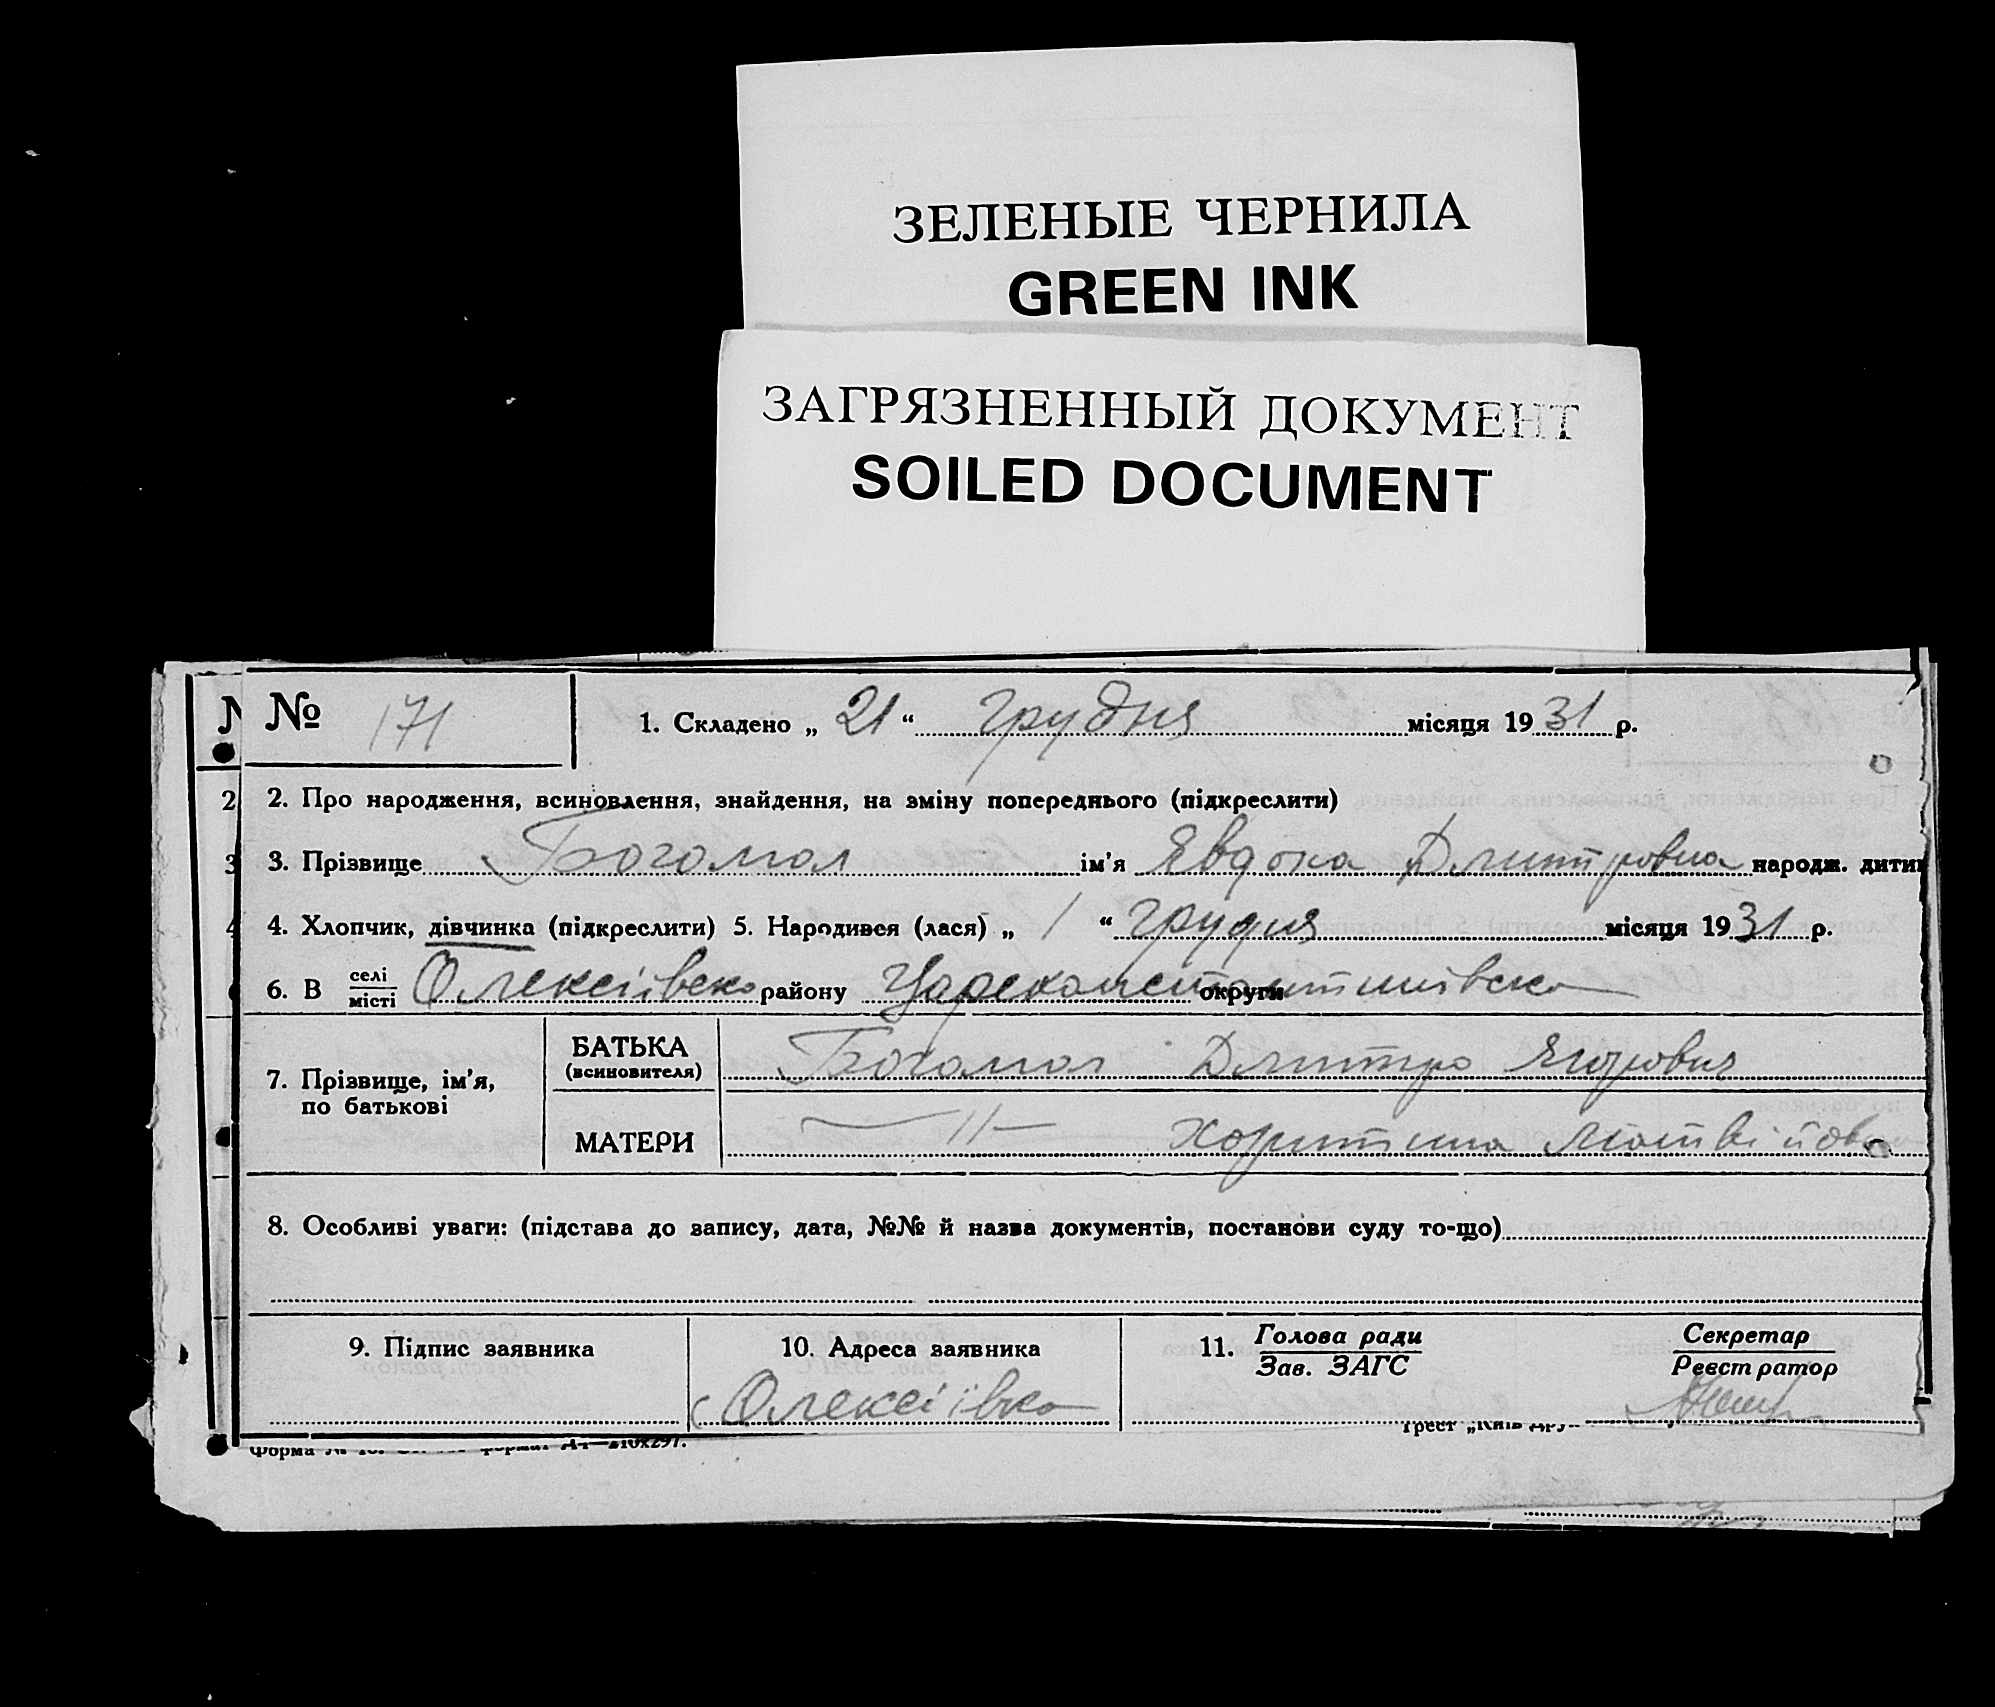 ЗЕЛЕНЫЕ ЧЕРНИЛА
GREEN INK
ЗАГРЯЗНЕННЫЙ ДОКУМЕНТ
SOILED DOCUMENT
№ 171
1. Складено „ 21 “ грудня місяця 1931 р.
2. Про народження, всиновлення, знайдення, на зміну попереднього (підкреслити)
3. Прізвище Богомол ім'я Явдоха Дмитровна народж. дити
4. Хлопчик, дівчинка (підкреслити) 5. Народився (лася) „ 1 “ грудня місяця 1931 р.
6. В селі місті Олексіївка району Царекостянтинівска округи
7. Прізвище, ім'я, по батькові
БАТЬКА (всиновителя) Богомол Дмитро Ягорович
МАТЕРИ —„— Хоритина Матвійов
8. Особливі уваги: (підстава до запису, дата, №№ й назва документів, постанови суду то-що)
9. Підпис заявника
10. Адреса заявника
с Олексіївка
11. Голова ради Зав. ЗАГС
Секретар Реєстратор